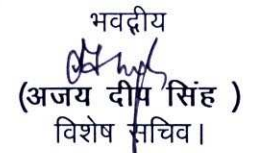 भवदीय
(अजय दीप सिंह )
विशेष सचिव।